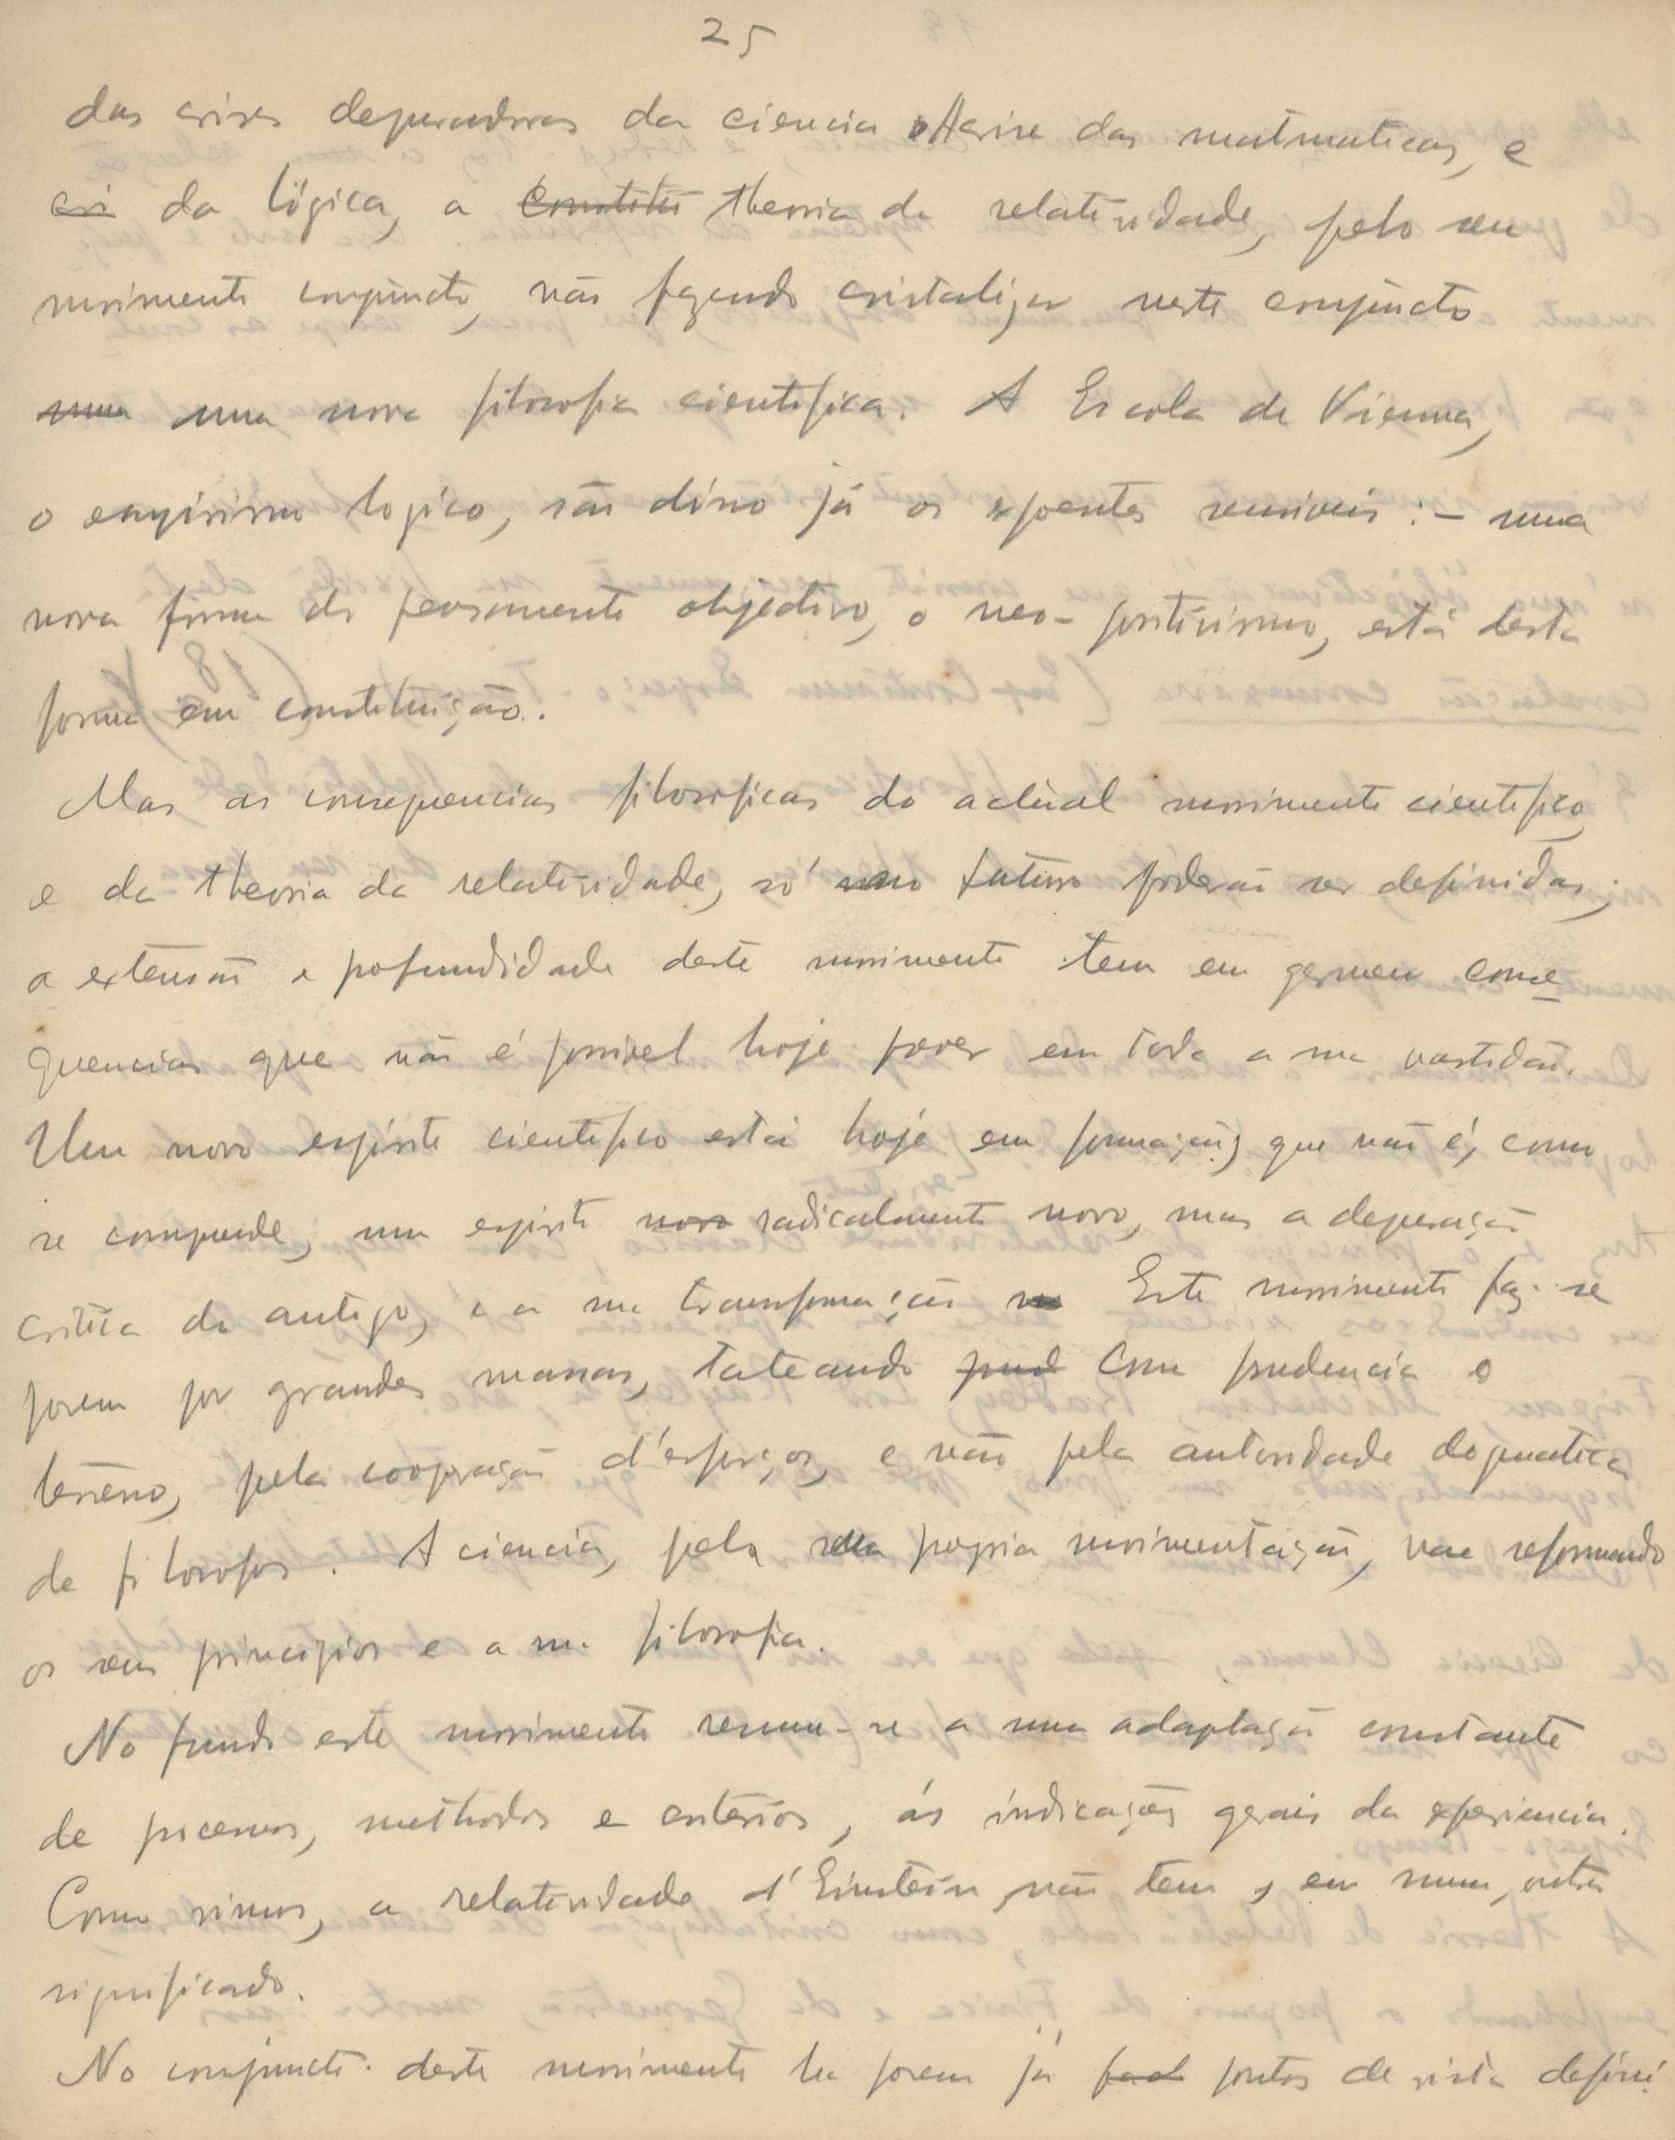 25
das crises depuradoras da ciencia A crise das matmaticas, e
cri da lógica, a Constitui theoria da relatividade, pelo seu
movimento conjuncto, vão fazendo cristalizar neste conjuncto
uma uma nova filosofia cientifica. A Escola de Vienna,
o empirismo logico, são disso já os expoentes sensiveis :- uma
nova forma de pensamento objectivo, o neo-positivismo, está desta
forma em constituição.
Mas as consequencias filosoficas do actual movimento cientifico
e da theoria da relatividade, só no futuro poderão ser definidas;
a extensão e profundidade deste movimento tem em germen conse
quencias que não é possivel hoje prever em toda a sua vastidão.
Um novo espirito cientifico está hoje em formação, que não é, como
se comprende, um espirito novo radicalmente novo, mas a depuração
critica do antigo, e a sua transformação Este movimento faz-se
porem por grandes massas, tateando prud com prudencia o
terreno, pela cooperação d'esforços, e não pela autoridade dogmatica
de filosofos. A ciencia, pela sua propria movimentação, vae reformando
os seus principios e a sua filosofia.
No fundo este movimento resume-se a uma adaptação constante
de processos, methodos e criterios, ás indicações gerais da experiencia.
Como vimos, a relatividade d'Einstein não tem, em suma, outro
significado.
No conjuncto deste movimento ha porem já pontos de vista defini